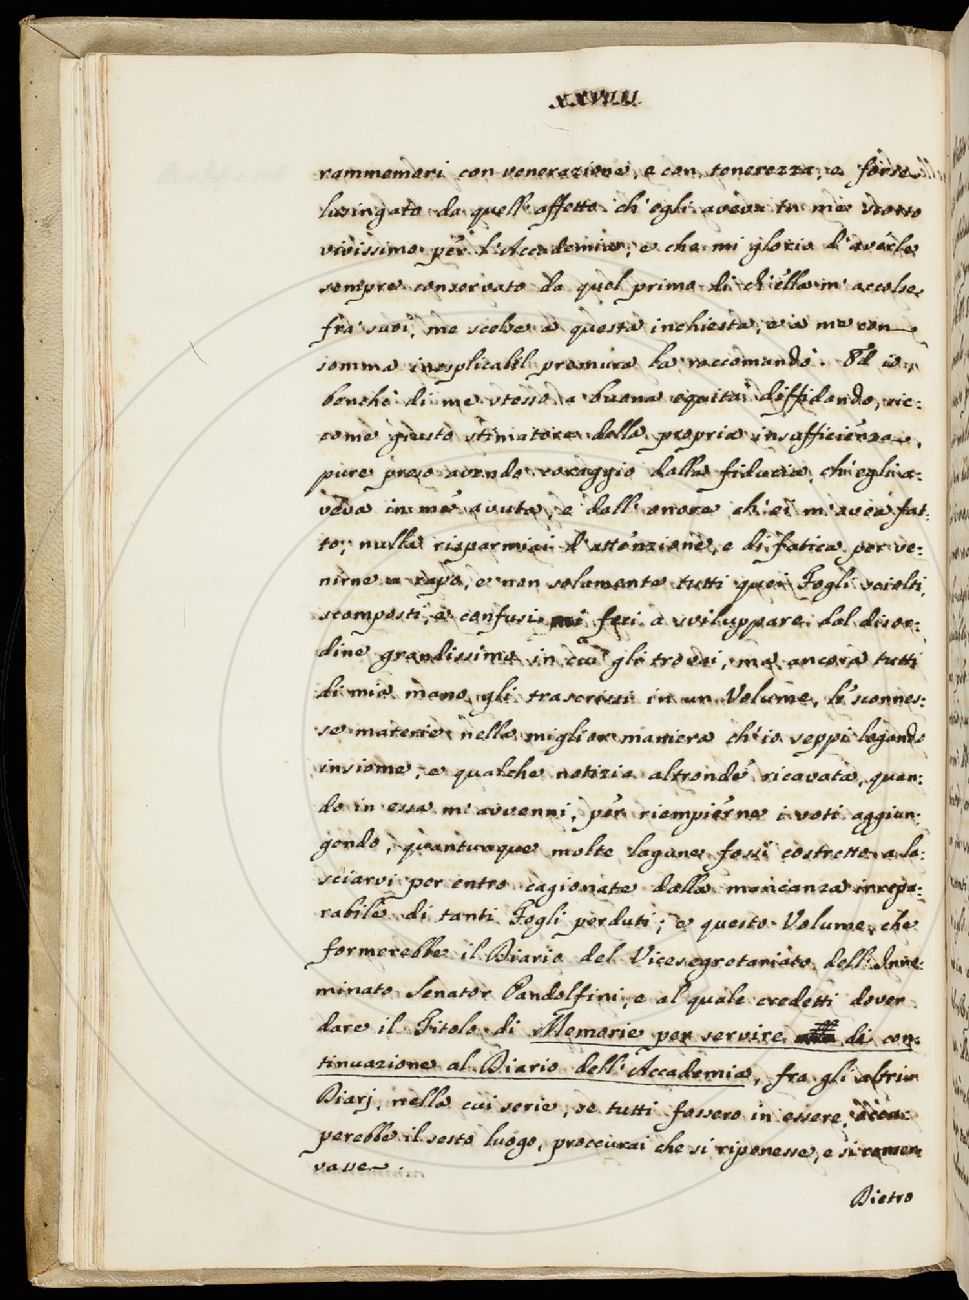 XXVIII.
rammemori con venerazione, e con tenerezza, e forse
lusingato da quell'affetto ch'egli aveva in me visto
vivissimo per l'Accademia, e che mi glorio d'averle
sempre conservato da quel primo dì ch'ella m'accolse
fra' suoi, me scelse a questa inchiesta, e a me con
somma inesplicabil premura la raccomandò. Ed io,
benchè di me stesso a buona equità diffidando, sic:
come giusto stimatore della propria insufficienza,
pure preso avendo coraggio dalla fiducia, ch'egli a:
veva in me avuta, e dall'onore ch'ei m'avea fat:
to, nulla risparmiai d'attenzione, e di fatica per ve:
nirne a capo, e non solamente tutti quei Fogli sciolti,
scomposti, e confusi mi feci a sviluppare dal disor:
dine grandissimo in cui gli trovai, ma ancora tutti
di mia mano gli trascrissi in un Volume, le sconnes:
se materie nella miglior maniera ch'io seppi legando
insieme, e qualche notizia altronde ricavata, quan:
do in essa m'avvenni, per riempierne i voti aggiun:
gendo, quantunque molte lagune fossi costretto a la:
sciarvi per entro cagionate dalla mancanza irrepa:
rabile di tanti Fogli perduti; e questo Volume, che
formerebbe il Diario del Vicesegretariato dell'Inno:
minato Senator Pandolfini, e al quale credetti dover
dare il Titolo di Memorie per servire di con:
tinuazione al Diario dell'Accademia, fra gli altri
Diarj, nella cui serie, se tutti fossero in essere, occu:
perebbe il sesto luogo, proccurai che si riponesse, e si conser:
vasse.
Dietro